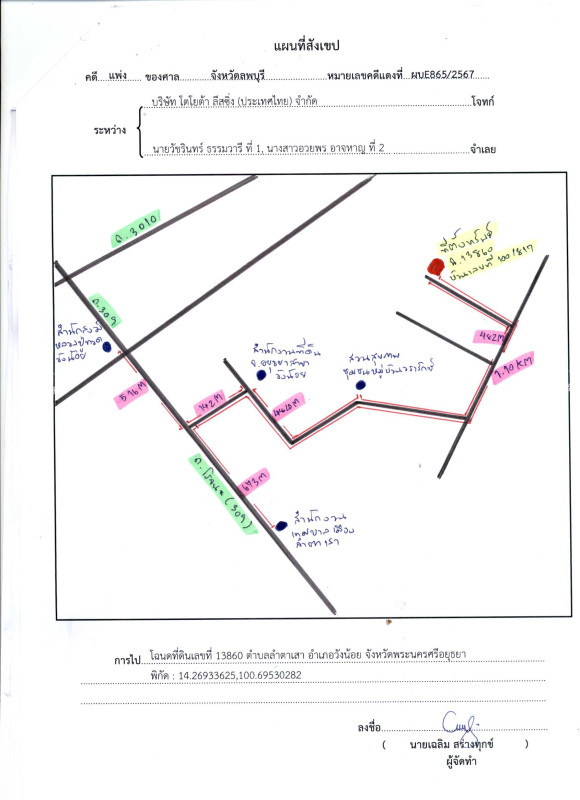 แผนที่สังเขป
คดี แพ่ง ของศาล จังหวัดลพบุรี หมายเลขคดีแดงที่ ผบE865/2567
บริษัท โตโยต้า ลีสซิ่ง (ประเทศไทย) จำกัด โจทก์
ระหว่าง
นายวัชรินทร์ ธรรมวารี ที่ 1, นางสาวอวยพร อาจหาญ ที่ 2 จำเลย
ถ.3010
ที่ตั้งทรัพย์
ฉ.13860
บ้านเลขที่ 100/817
ถ.309
สำนักสงฆ์
หลวงปู่ทวด
วังน้อย
442M
1.90 KM
596M
142M
สำนักงานที่ดิน
จ.อยุธยาสาขา
วังน้อย
สวนสุขภาพ
ชุมชนหมู่บ้านวรารักษ์
ถ.โรจนะ(309)
673M
สำนักงาน
เทศบาลเมือง
ลำตาเสา
การไป โฉนดที่ดินเลขที่ 13860 ตำบลลำตาเสา อำเภอวังน้อย จังหวัดพระนครศรีอยุธยา
พิกัด : 14.26933625,100.69530282
ลงชื่อ
( นายเฉลิม สร้างทุกข์ )
ผู้จัดทำ